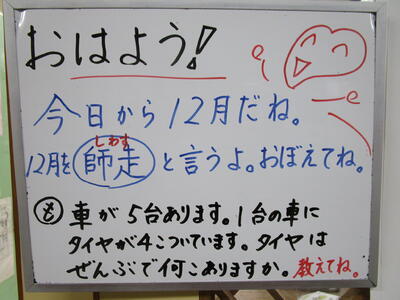 おはよう!
今日から12月だね。
しわす
12月を師走と言うよ。おぼえてね。
も 車が5台あります。1台の車に
タイヤが4こついています。タイヤは
ぜんぶで何こありますか。教えてね。